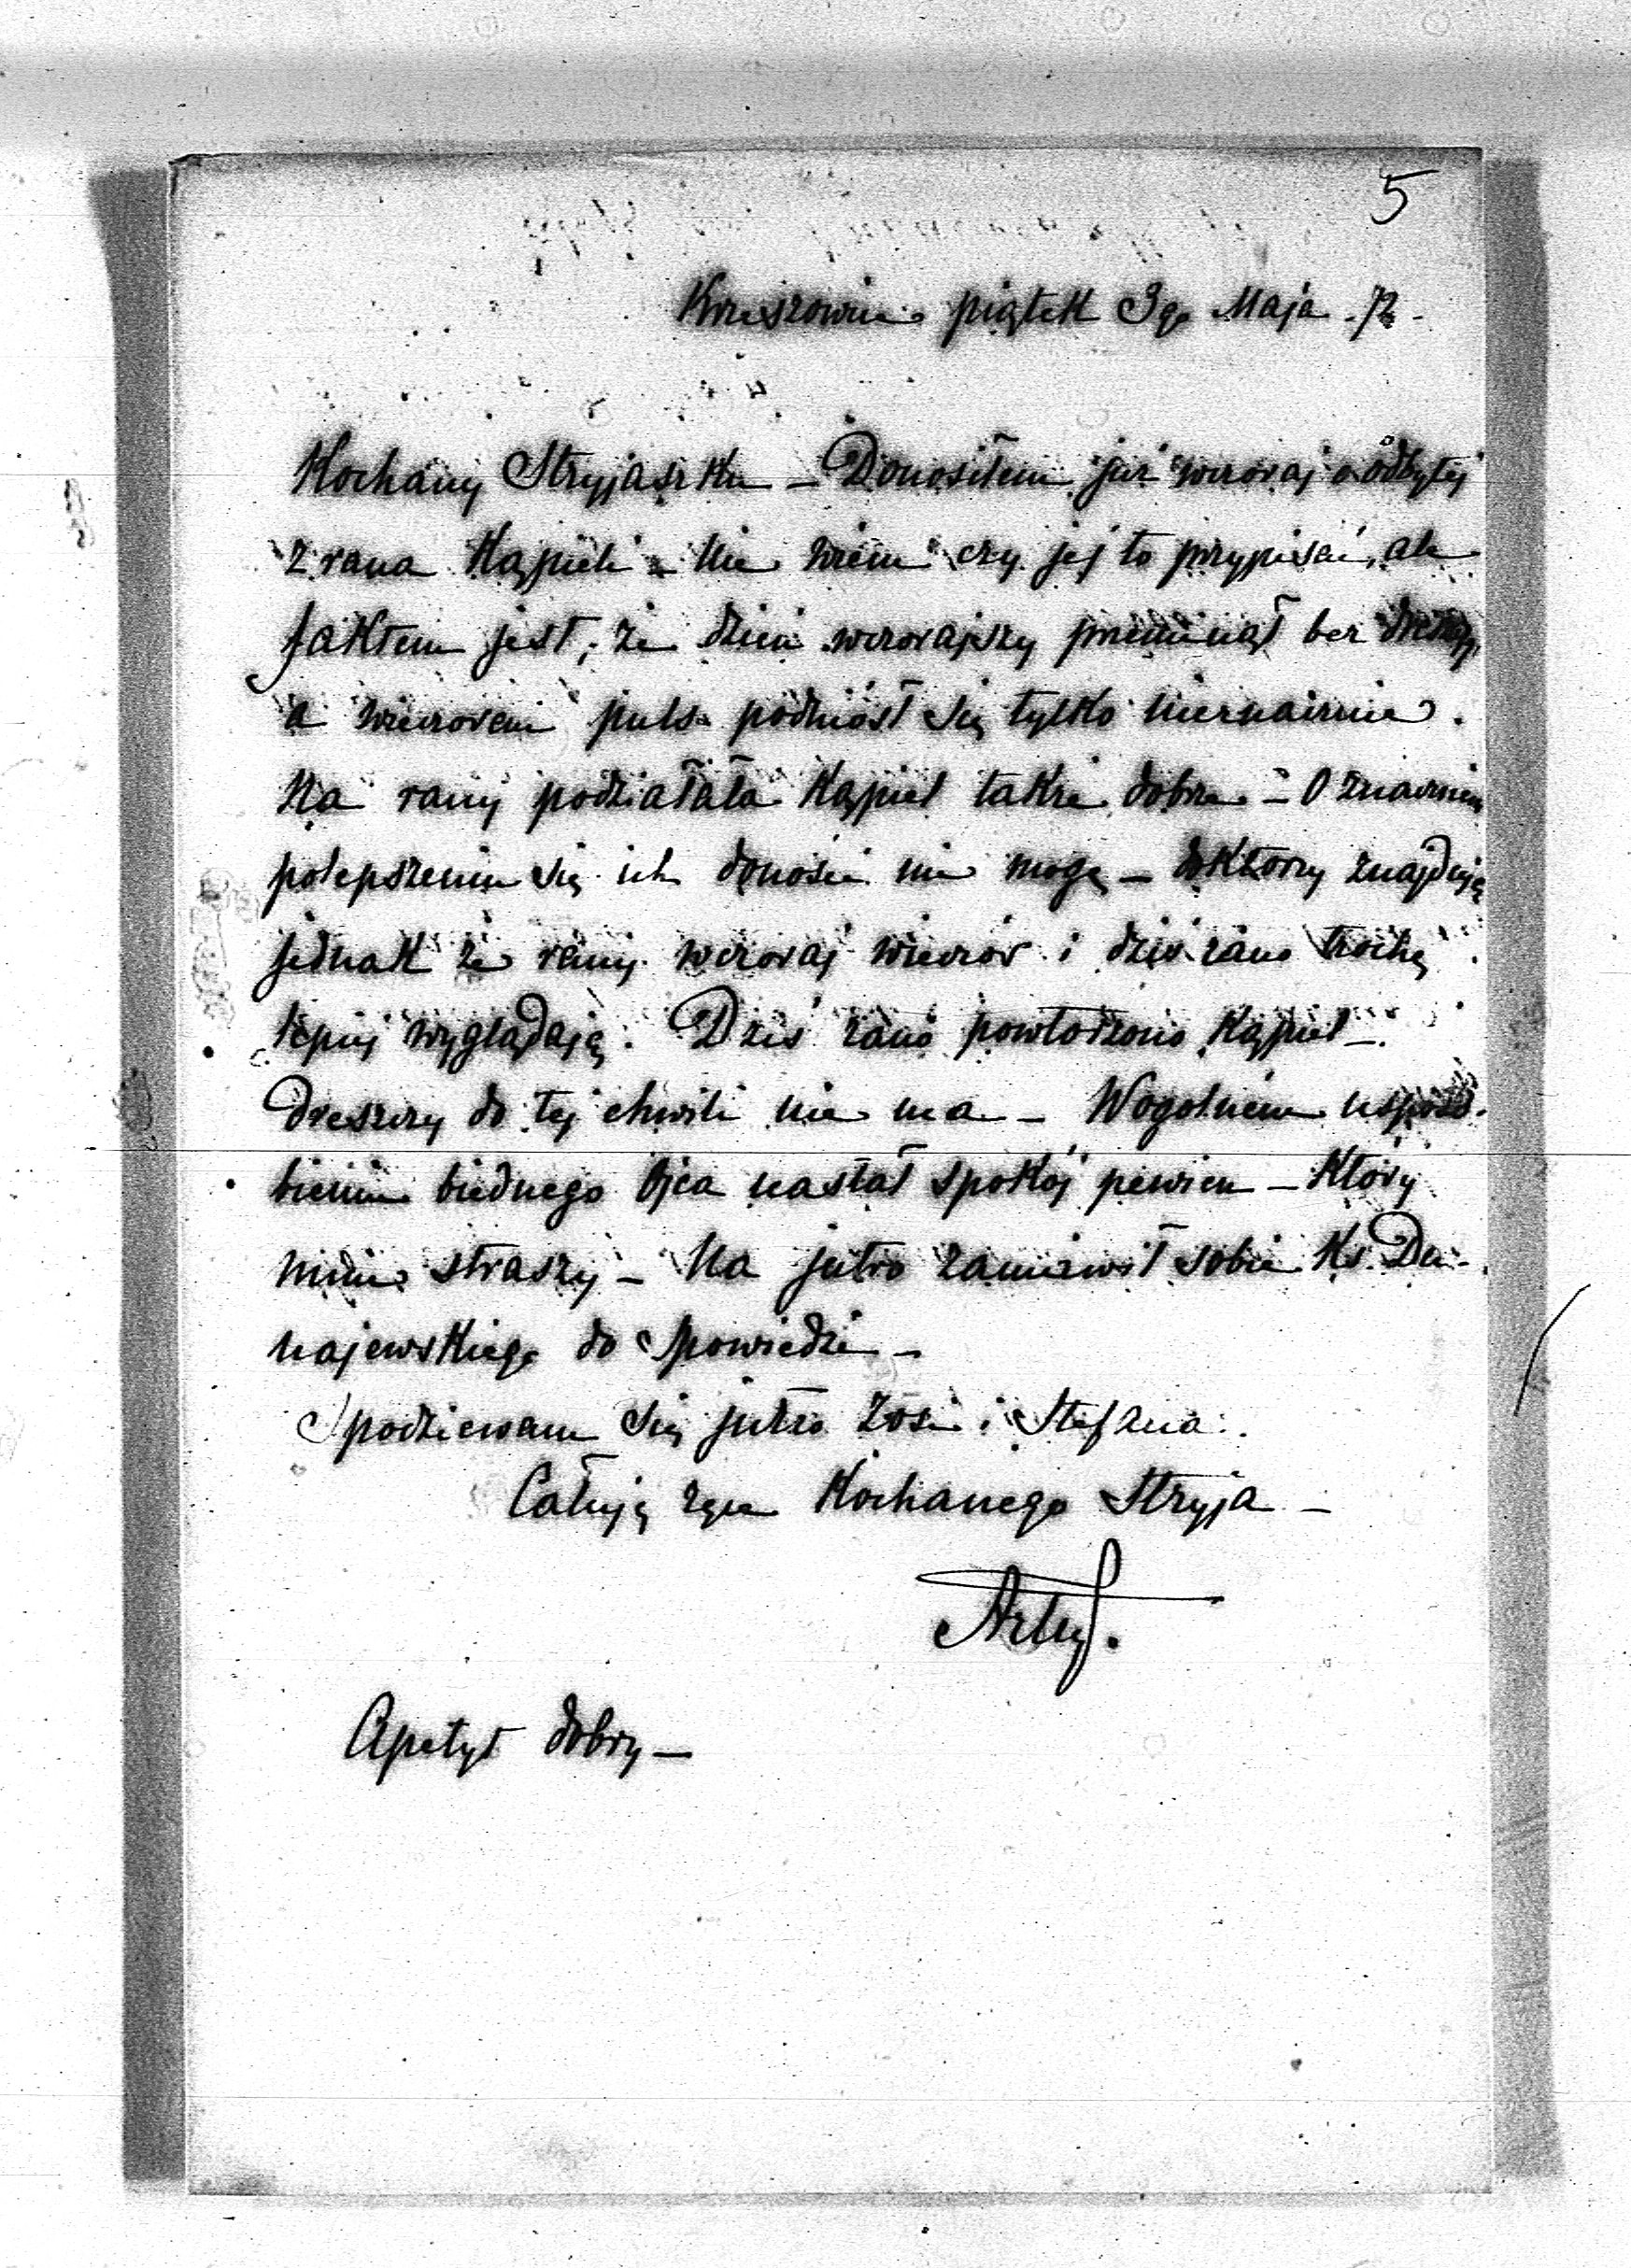 5
Krzeszowice piątek 3go Maja 72.
Kochany Stryjaszku – Donosiłem już wczoraj o odbytej
z rana Kąpieli – Nie wiem czy jej to przypisać, ale
faktem jest, że dzień wczorajszy przeminął bez dreszczy,
a wieczorem puls podniósł się tylko nieznacznie.
Na rany podziałała Kąpiel także dobrze – O znacznem
polepszeniu się ich donosić nie mogę – doktorzy znajdują
jednak że rany wczoraj wieczór i dziś rano trochę
lepiej wyglądają. Dziś rano powtórzono Kąpiel –
dreszczy do tej chwili nie ma – Wogolnem usposo-
bieniu biednego Ojca nastał spokój pewien – Który
mnie straszy – Na jutro zamówił sobie Ks. Du-
najewskiego do Spowiedzi –
Spodziewam się jutro Zosi i Stefana.
Całuję ręce Kochanego Stryja –
Artur.
Apetyt dobry –